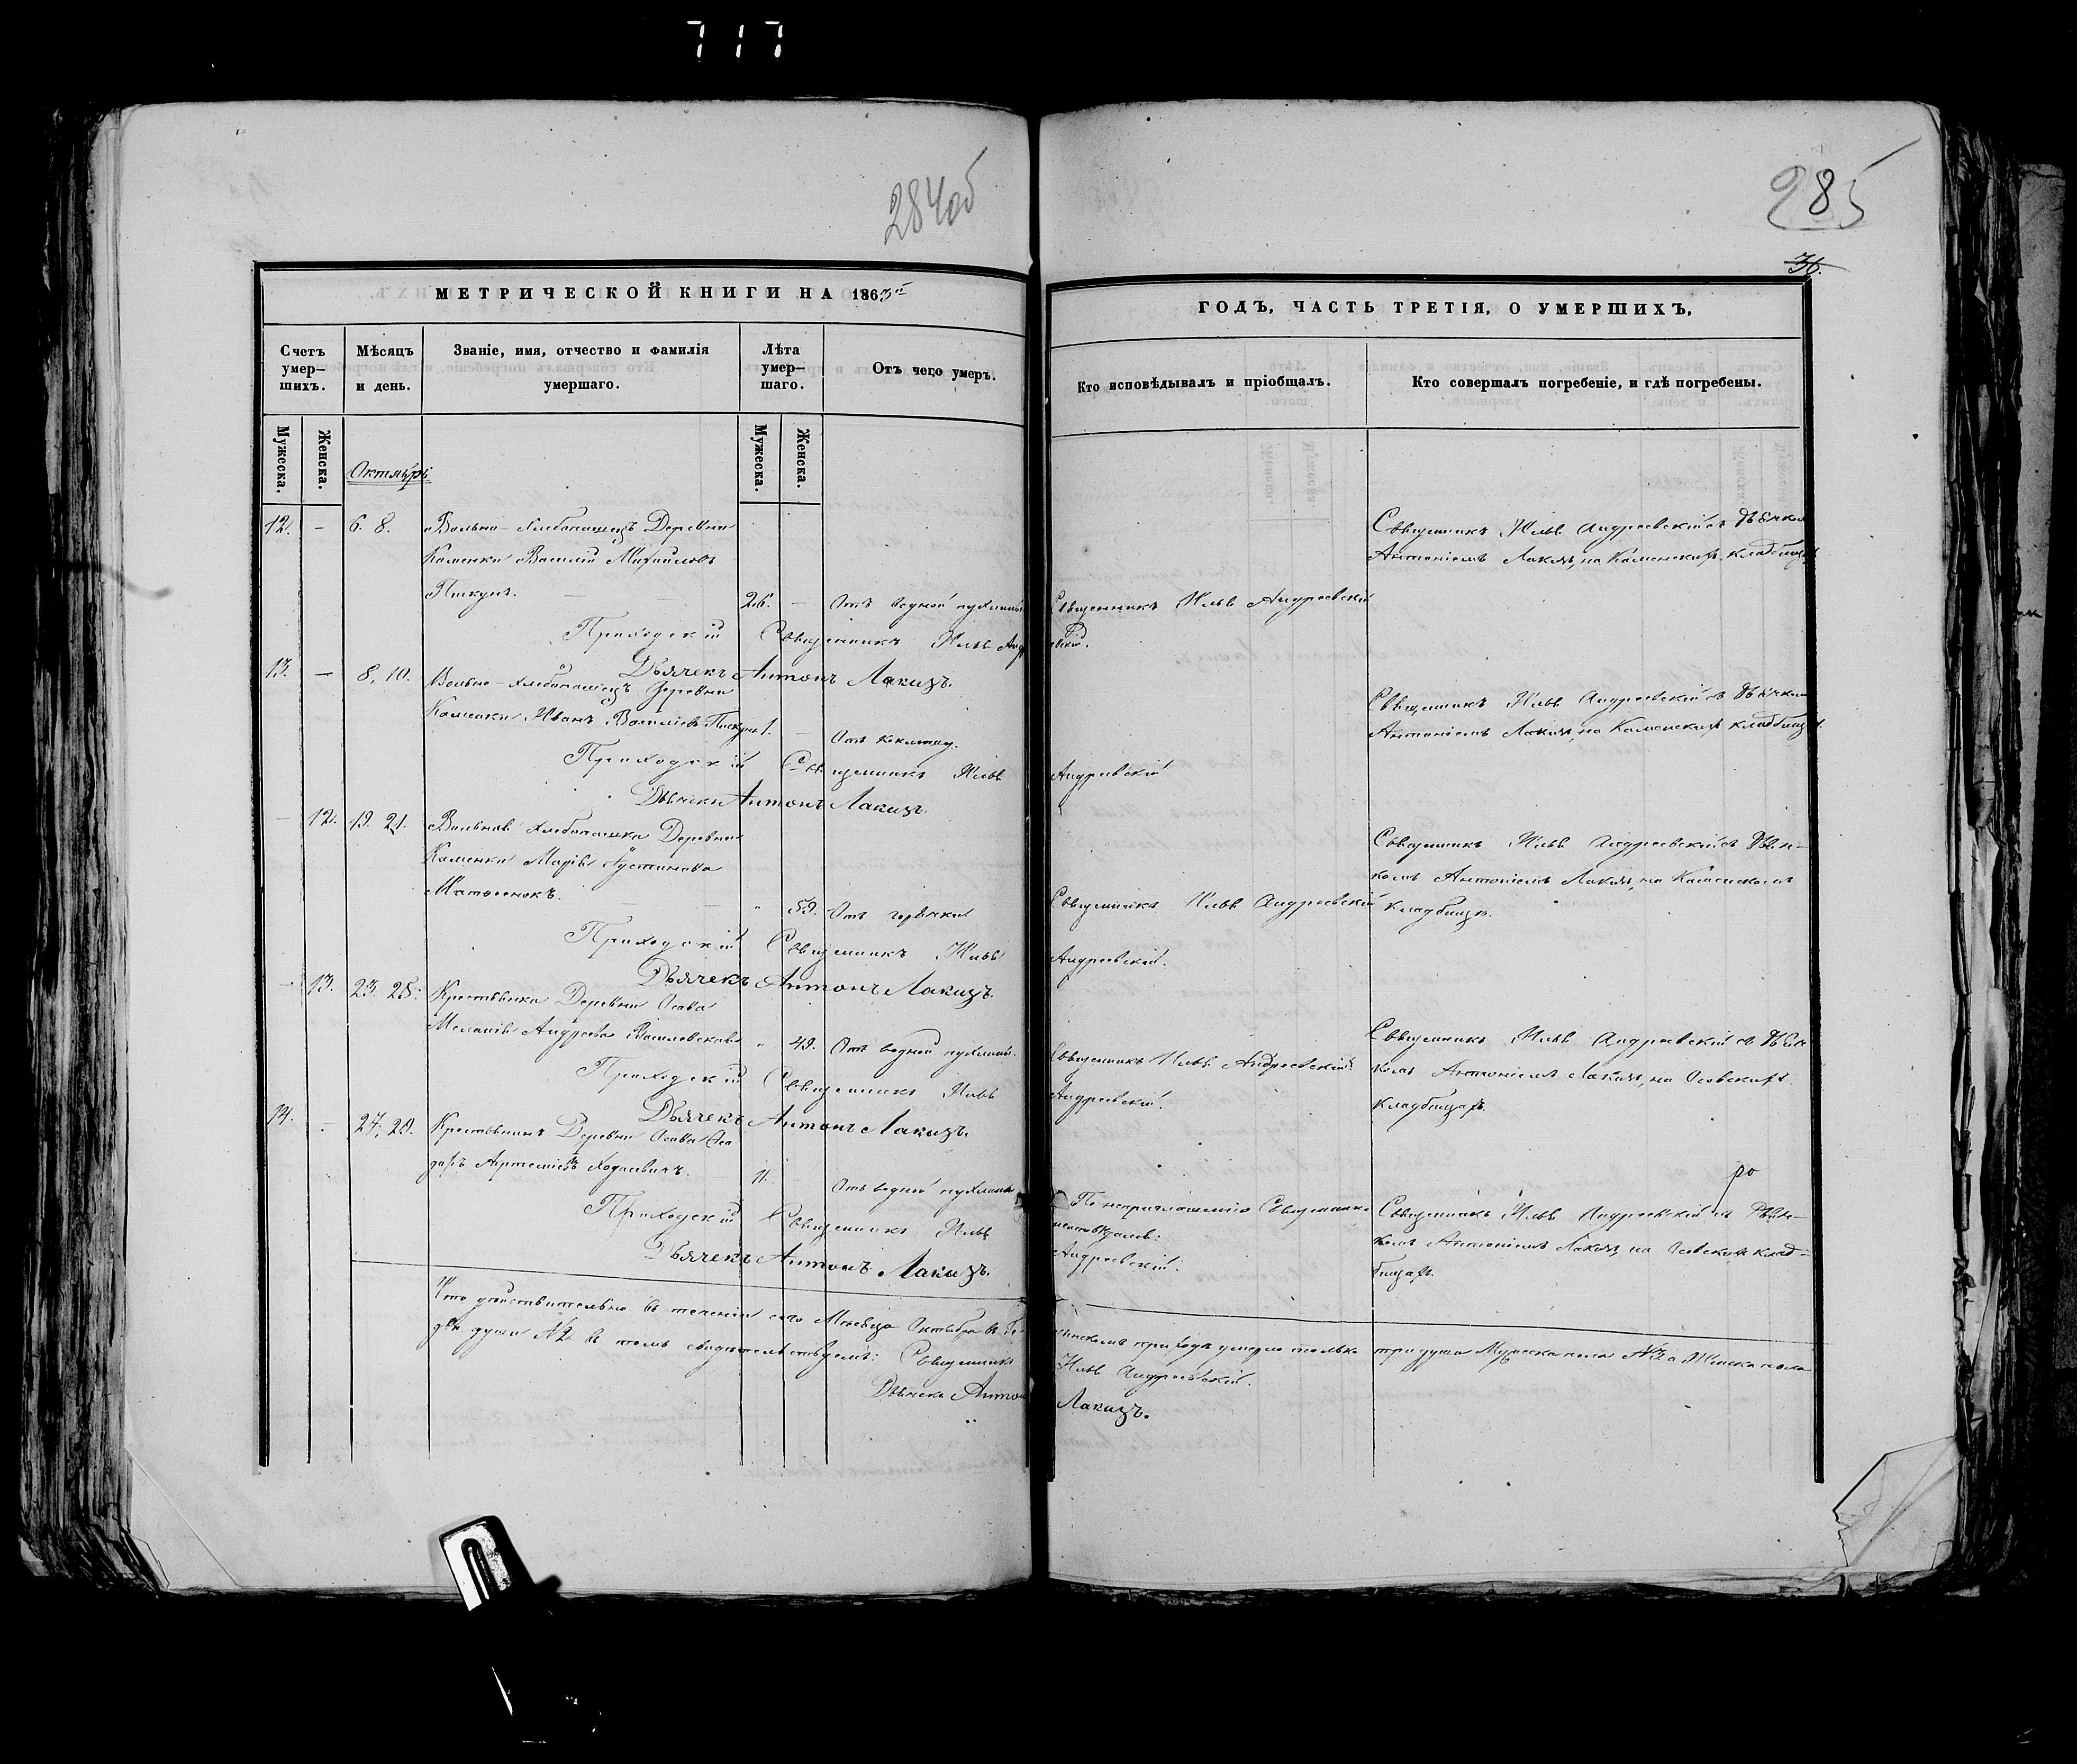 717
284об
285
36.
МЕТРИЧЕСКОЙ КНИГИ НА 1863й
ГОДЪ, ЧАСТЬ ТРЕТІЯ, О УМЕРШИХЪ,
Счетъ умер-
шихъ.
Мѣсяцъ
и день.
Званіе, имя, отчество и фамилія
умершаго.
Лѣта
умер-
шаго.
Отъ чего умеръ.
Кто исповѣдывалъ и пріобщалъ.
Кто совершалъ погребеніе, и гдѣ погребены.
Мужеска.
Женска.
Мужеска.
Женска.
Октябрь
12. – 6. 8. Вольно-Хлебопашецъ Деревни
Каменки Василій Михайловъ
Пискунъ. 26. – Отъ водной пухлины
Священникъ Илья Андреевскій
Священникъ Илья Андреевскій съ Дьячком
Антоніемъ Лакизъ, на Каменскихъ кладбищахъ.
Приходскій Священникъ Илья
Дьячекъ Антонъ Лакизъ.
13. – 8. 10. Вольно-Хлебопашецъ Деревни
Каменки Иванъ Васильевъ Пискунъ 1. – Отъ коклюшу.
Священникъ Илья Андреевскій съ Дьячком
Антоніемъ Лакизъ, на Каменскихъ кладбищахъ.
Приходскій Священникъ Илья Андреевскій
Дьячекъ Антонъ Лакизъ.
– 12. 19. 21. Вольная Хлебопашка Деревни
Каменки Марія Іустинова
59. Отъ горячки
Священникъ Илья Андреевскій
Священникъ Илья Андреевскій съ Дьяч-
комъ Антоніемъ Лакизъ, на Каменскомъ
кладбищѣ.
Приходскій Священникъ Илья Андреевскій.
Дьячекъ Антонъ Лакизъ.
– 13. 23. 25. Крестьянка Деревни Осова
Меланія Андреева 49. Отъ водной пухлины.
Священникъ Илья Андреевскій
Священникъ Илья Андреевскій съ Дьяч-
комъ Антоніемъ Лакизъ, на Осовскихъ
кладбищахъ.
Приходскій Священникъ Илья Андреевскій.
Дьячекъ Антонъ Лакизъ.
14. – 27. 29. Крестьянинъ Деревни Осова
11. Отъ водной пухлины
Священникъ Илья Андреевскій съ Дьяч-
комъ Антоніемъ Лакизъ, на Осовскихъ клад-
бищахъ.
Приходскій Священникъ Илья Андреевскій.
Дьячекъ Антонъ Лакизъ.
Что дѣйствительно въ теченіи сего Мѣсяца Октября въ
приходѣ умерло только три души Мужеска пола №3 а Женска пола
двѣ души №2 въ томъ свидѣтельствуемъ: Священникъ Илья Андреевскій.
Дьячекъ Антонъ Лакизъ.